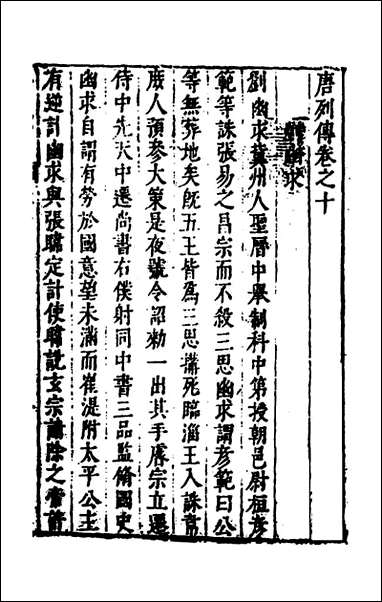 唐列傳卷之十
求
劉幽求冀州人聖曆中舉制科中第授朝邑尉桓彦
範等誅張易之昌宗而不殺三思幽求謂彦範曰公
等無葬地矣旣五王皆爲三思搆死臨淄王入誅韋
庶人預參大策是夜號令詔勑一出其手睿宗立遷
侍中先天中遷尚書右僕射同中書三品監脩國史
幽求自謂有勞於國意望未滿而崔湜附太平公主
有逆計幽求與張暐定計使暐說玄宗誅除之帝許